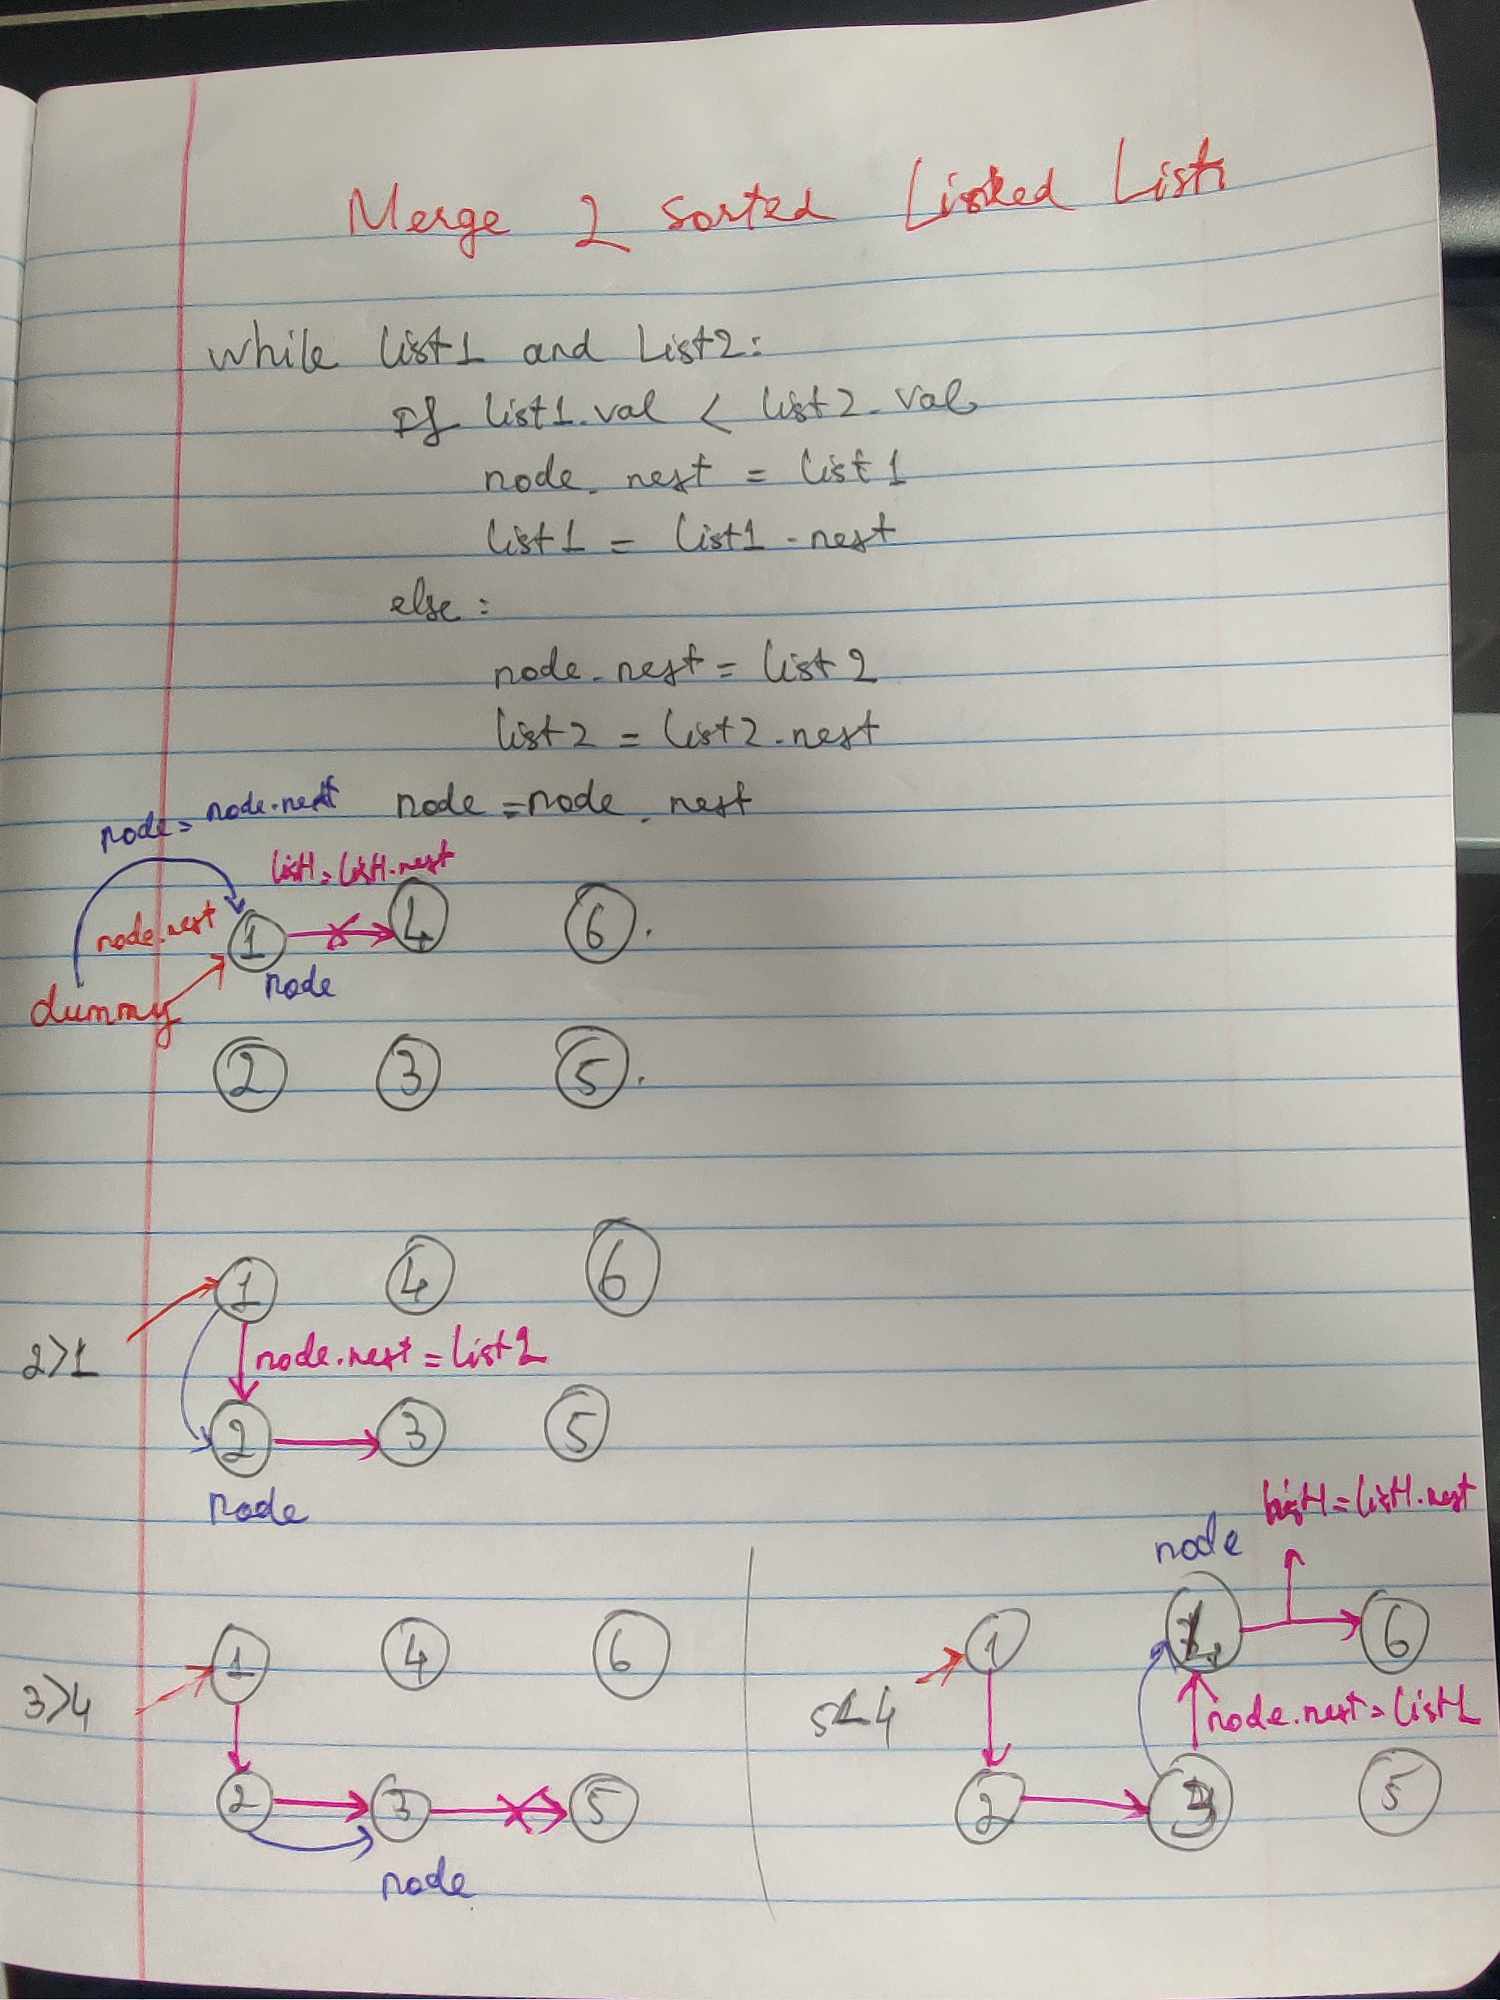 Merge 2 sorted Linked List
while list1 and List2:
If list1.val < list2.val
node.next = list1
list1 = list1.next
else:
node.next = list2
list2 = list2.next
node = node.next
node = node.next
list1 = list1.next
node.next
1 4 6.
node
dummy
2 3 5.
1 4 6
2>1
node.next = list2
2 3 5
node
1 4 6
3>4
2 3 5
node
list1 = list1.next
node
1 6
5<4
node.next = list1
2 3 5